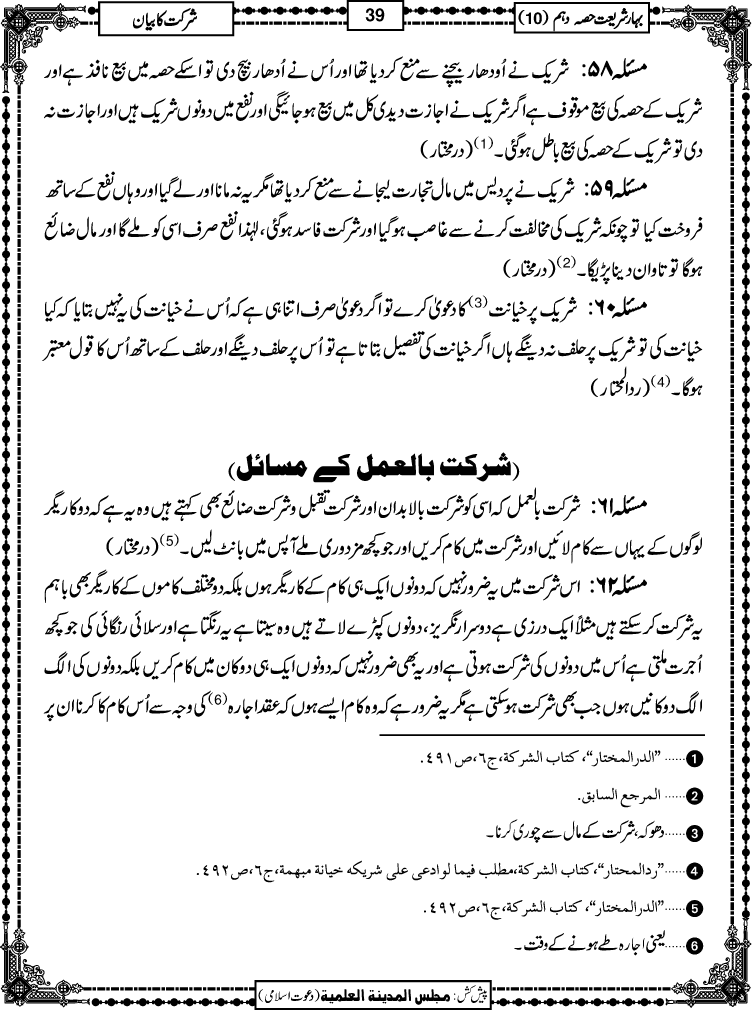 بہارِ شریعت حصہ دہم (10)
39
شرکت کا بیان
مسئلہ ۵۸: شریک نے اُودھار بیچنے سے منع کردیا تھا اور اُس نے اُدھار بیچ دی تو اسکے حصہ میں بیع نافذ ہے اور
شریک کے حصہ کی بیع موقوف ہے اگر شریک نے اجازت دیدی کل میں بیع ہوجائیگی اور نفع میں دونوں شریک ہیں اور اجازت نہ
دی تو شریک کے حصہ کی بیع باطل ہوگئی۔(1) (درمختار)
مسئلہ ۵۹: شریک نے پردیس میں مال تجارت لیجانے سے منع کردیا تھا مگر یہ نہ مانا اور لے گیا اور وہاں نفع کے ساتھ
فروخت کیا تو چونکہ شریک کی مخالفت کرنے سے غاصب ہوگیا اور شرکت فاسد ہوگئی، لہٰذا نفع صرف اسی کو ملے گا اور مال ضائع
ہوگا تو تاوان دینا پڑیگا۔(2) (درمختار)
مسئلہ ۶۰: شریک پر خیانت(3) کا دعویٰ کرے تو اگر دعویٰ صرف اتنا ہی ہے کہ اُس نے خیانت کی یہ نہیں بتایا کہ کیا
خیانت کی تو شریک پر حلف نہ دینگے ہاں اگر خیانت کی تفصیل بتاتا ہے تو اُس پر حلف دینگے اور حلف کے ساتھ اُس کا قول معتبر
ہوگا۔(4) (ردالمحتار)
(شرکت بالعمل کے مسائل)
مسئلہ ۶۱: شرکت بالعمل کہ اسی کو شرکت بالابدان اور شرکت تقبل و شرکت صنائع بھی کہتے ہیں وہ یہ ہے کہ دو کاریگر
لوگوں کے یہاں سے کام لائیں اور شرکت میں کام کریں اور جو کچھ مزدوری ملے آپس میں بانٹ لیں۔(5) (درمختار)
مسئلہ ۶۲: اس شرکت میں یہ ضرور نہیں کہ دونوں ایک ہی کام کے کاریگر ہوں بلکہ دو مختلف کاموں کے کاریگر بھی باہم
یہ شرکت کرسکتے ہیں مثلاً ایک درزی ہے دوسرا رنگریز، دونوں کپڑے لاتے ہیں وہ سیتا ہے یہ رنگتا ہے اور سلائی رنگائی کی جو کچھ
اُجرت ملتی ہے اُس میں دونوں کی شرکت ہوتی ہے اور یہ بھی ضرور نہیں کہ دونوں ایک ہی دوکان میں کام کریں بلکہ دونوں کی الگ
الگ دوکانیں ہوں جب بھی شرکت ہوسکتی ہے مگر یہ ضرور ہے کہ وہ کام ایسے ہوں کہ عقد اجارہ(6) کی وجہ سے اُس کام کا کرنا ان پر
1 ......"الدرالمختار"، کتاب الشرکة، ج٦، ص٤٩١.
2 ......المرجع السابق.
3 ......دھوکہ، شرکت کے مال سے چوری کرنا۔
4 ......"ردالمحتار"، کتاب الشرکة، مطلب فیما لوادعی علی شریکه خیانة مبهمة، ج٦، ص٤٩٢.
5 ......"الدرالمختار"، کتاب الشرکة، ج٦، ص٤٩٢.
6 ......یعنی اجارہ طے ہونے کے وقت۔
پیش کش: مجلس المدینة العلمیة (دعوت اسلامی)